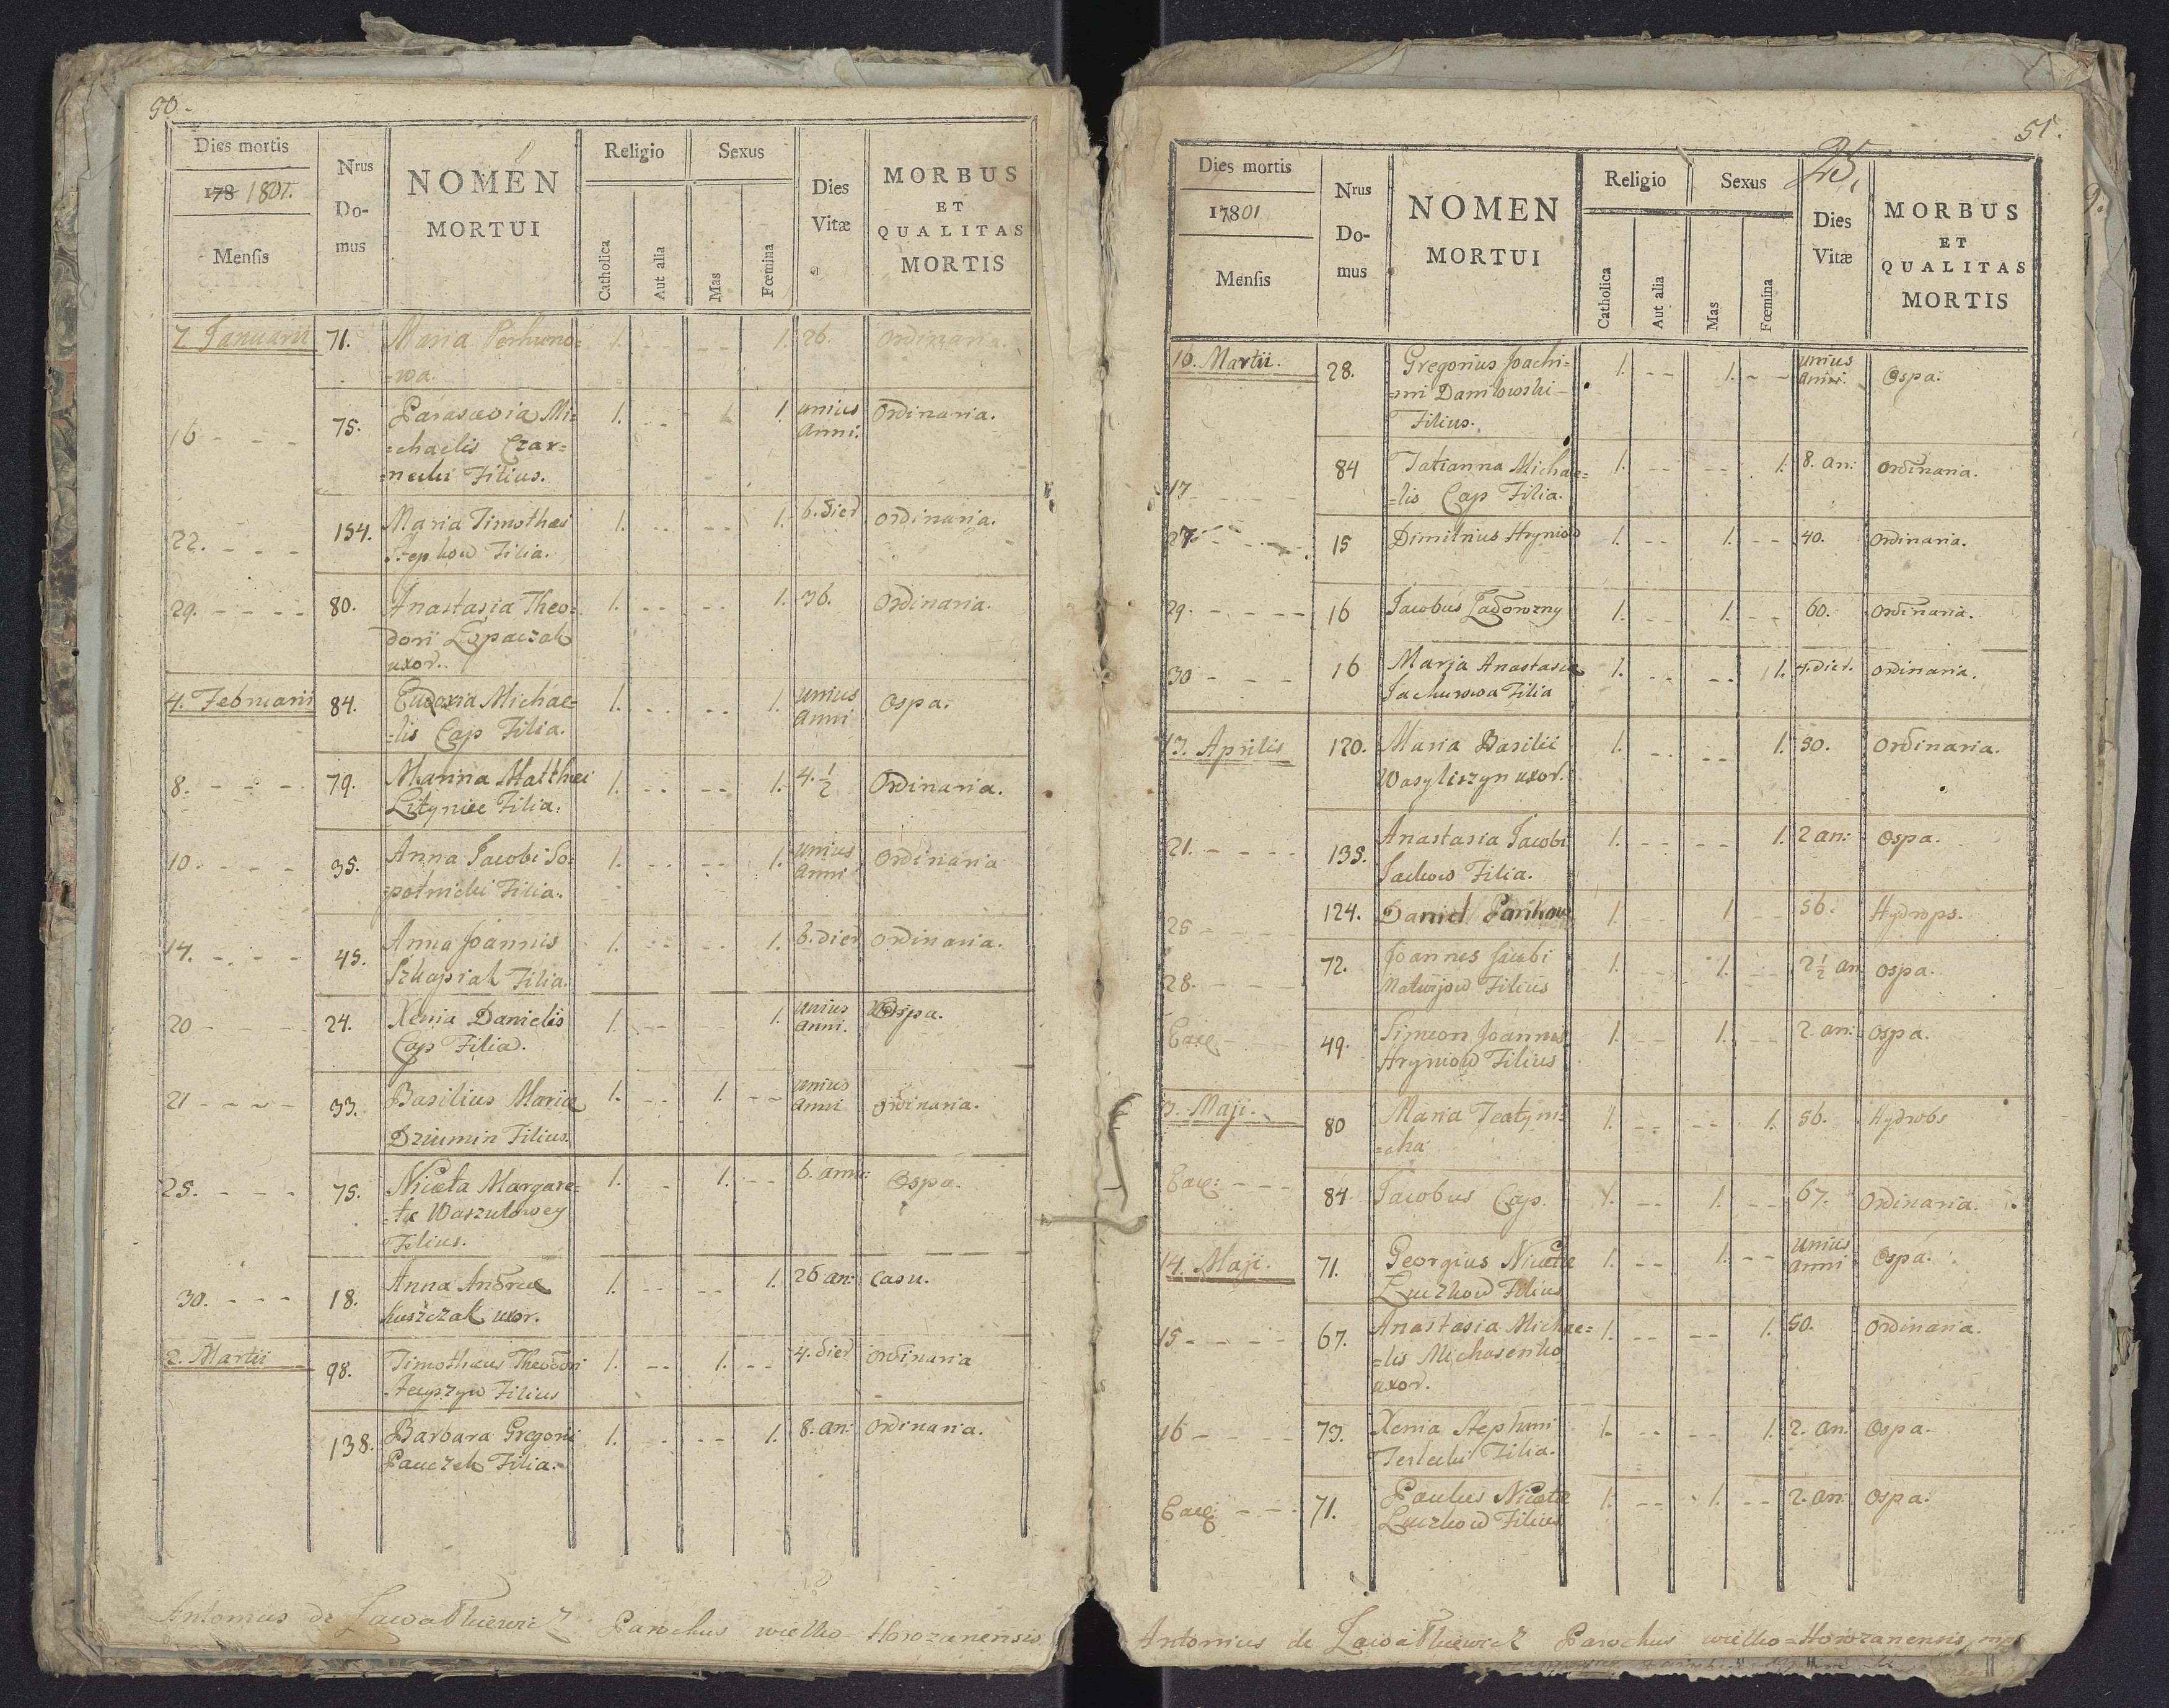 50.
Dies mortis
178 1801.
Mensis
Nrus
Do-
mus
NOMEN
MORTUI
Religio
Catholica
Aut alia
Sexus
Mas
Fœmina
Dies
Vitæ
MORBUS
ET
QUALITAS
MORTIS
7 Januarii 71. Maria Perhuno= 1. -- -- 1. 26. Ordinaria.
=wa.
16 - - - 75. Parascevia Mi= 1. -- 1. unius Anni. Ordinaria.
=chaelis Czar=
=necki Filius.
22. - - - 154. Maria Timothaei 1. -- -- 1. 6. dier Ordinaria.
Stepkow Filia.
29. - - - - 80. Anastasia Theo= 1. -- -- 1. 36. Ordinaria.
dorii uxor.
4. Februarii 84. Eudoxia Michae= 1. -- -- 1. unius Anni Ospa.
=lis Cap Filia.
8. - - - 79. Marina Matthaei 1. -- -- 1. 4. 1/2 Ordinaria.
Lityniec Filia.
10 - - - 35. Anna Jacobi So= 1. -- -- 1. unius Anni Ordinaria
=potnicki Filia.
14. - - - 45. Anna Joannis 1. -- -- 1. 6. dier Ordinaria.
Szkapiak Filia.
20 - - - - 24. Xenia Danielis 1. -- -- 1. unius Anni. Ospa.
Cap Filia.
21 - - - - 33. Basilius Mariæ 1. -- 1. -- unius Anni Ordinaria.
Dziumin Filius.
25. - - - 75. Nicæta Margare= 1. -- 1. -- 6. anno: Ospa.
=tæ Waszulowey
Filius.
30. - - - 18. Anna Andreæ 1. -- -- 1. 26 an: Casu.
Kuszczak uxor.
2. Martii 98. Timothæus Theodori 1. -- 1. -- 4. dier Ordinaria
Filius
138. Barbara Gregorii 1. - -- 1. 8. an: Ordinaria.
Pauczek Filia.
Antonius de Parochus wielko-Horozanensis
51.
25.
Dies mortis
17801
Mensis
Nrus
Do-
mus
NOMEN
MORTUI
Religio
Catholica
Aut alia
Sexus
Mas
Fœmina
Dies
Vitæ
MORBUS
ET
QUALITAS
MORTIS
10. Martii. 28. Gregorius Joachi= 1. -- 1. -- unius Anni. Ospa.
=mi Danilowski
Filius.
17 - - - 84 Tatianna Michae= 1. -- -- 1. 8. an: Ordinaria.
=lis Cap Filia.
27 - - - 15 Dimitrius Hryniow 1. -- 1. -- 40. Ordinaria.
29. - - - - 16 Jacobus Zadorozny 1. -- 1. -- 60. Ordinaria.
30 - - - 16 Marja Anastasiæ 1. -- -- 1. 4. dier. Ordinaria.
Jachurowa Filia
13. Aprilis 120. Maria Basilii 1. -- -- 1. 50. Ordinaria.
Wasyliszyn uxor.
21. - - - - 135. Anastasia Jacobi 1. -- -- 1. 2 an: Ospa.
Jackow Filia.
25 - - - 124. Daniel 1. -- 1 -- 56. Hydrops.
28. - - - 72. Joannes Jacobi 1. -- 1. -- 2 1/2 an Ospa.
Matwijow Filius
Eadem - - - 49. Simeon Joannis 1. -- 1. -- 2. an: Ospa.
Hryniow Filius
3. Maji. 80 Maria 1. -- -- 1. 56. Hydrobs
=cha
Eadem: - - - 84 Jacobus Cap. 1. -- 1. -- 67. Ordinaria.
14. Maji. 71. Georgius Nicetæ 1. -- 1. -- unius anni Ospa.
Luczkow Filius
15 - - - - 67. Anastasia Michae= 1. -- -- 1. 50. Ordinaria.
=lis Michasenko
uxor.
16 - - - - 73. Xenia Stephani 1. -- -- 1. 2. an: Ospa.
Terlecki Filia.
Eadem: - - - 71. Paulus Nicetæ 1. -- 1. -- 2. an: Ospa.
Luczkow Filius
Antonius de Parochus wielko=Horozanensis mp